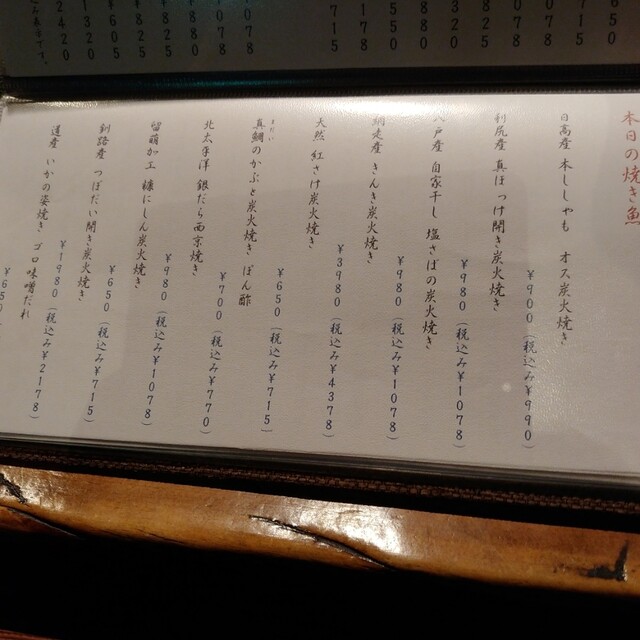 本日の焼き魚
日高産 本ししゃも オス炭火焼き
¥900(税込み¥990)
利尻産 真ほっけ開き炭火焼き
¥980(税込み¥1078)
八戸産 自家干し 塩さばの炭火焼き
¥980(税込み¥1078)
網走産 きんき炭火焼き
¥3980(税込み¥4378)
天然 紅さけ炭火焼き
¥650(税込み¥715)
真鯛のかぶと炭火焼き ぽん酢
まだい
¥700(税込み¥770)
北太平洋 銀だら西京焼き
¥980(税込み¥1078)
留萌加工 糠にしん炭火焼き
¥650(税込み¥715)
釧路産 つぼだい開き炭火焼き
¥1980(税込み¥2178)
道産 いかの姿焼き ゴロ味噌だれ
¥650